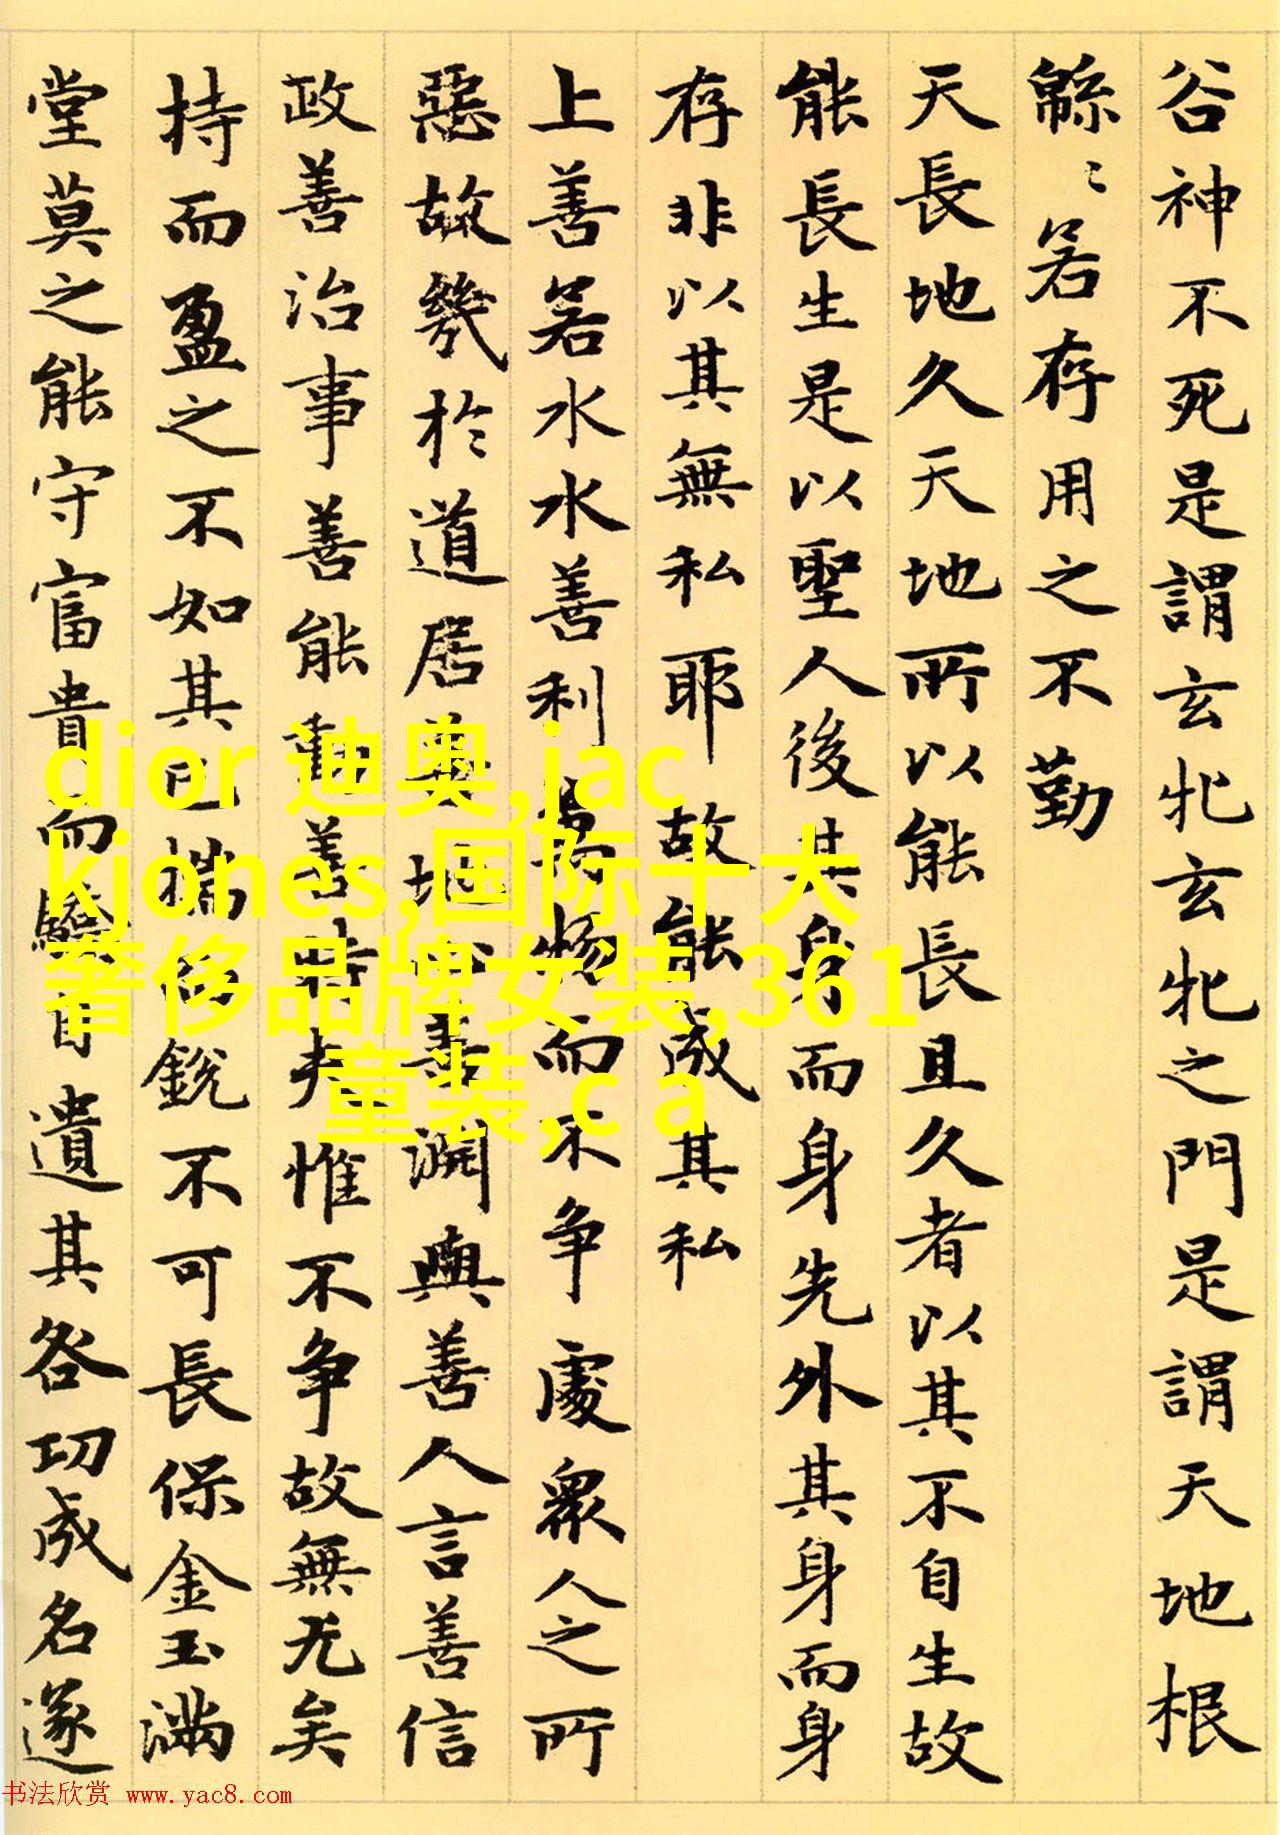 谷神不死是謂玄牝玄牝之門是謂天地根
緜〻若存用之不勤
天長地久天地所以能長且久者以其不自生故
能長生是以聖人後其身而身先外其身而身
存非以其無私耶故能成其私
上善若水水善利萬物而不争處衆人之所
惡故幾於道居善地心善渊與善人言善信
政善治事善能動善時夫惟不争故無尤矣
持而盈之不如其已揣銳不可長保金玉滿
堂莫之能守富貴而驕自遺其咎功成名遂
dior 迪奥,jac
kjones,国际十大
奢侈品牌女装,361
童装,c a
书法欣赏 www.yac8.com